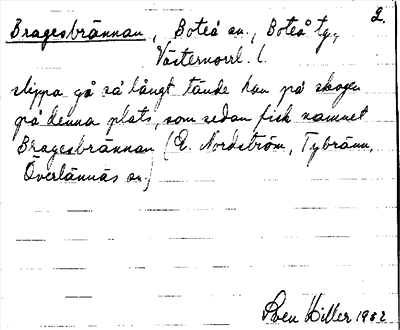 2.
Bragesbrännan, Boteå sn., Boteå tg,
Västernorrl. l.
slippa gå så långt tände han på skogen
på denna plats, som sedan fick namnet
Bragesbrännan (E. Nordström, Tybränn,
Överlännäs sn.)
Sven Hiller 1932